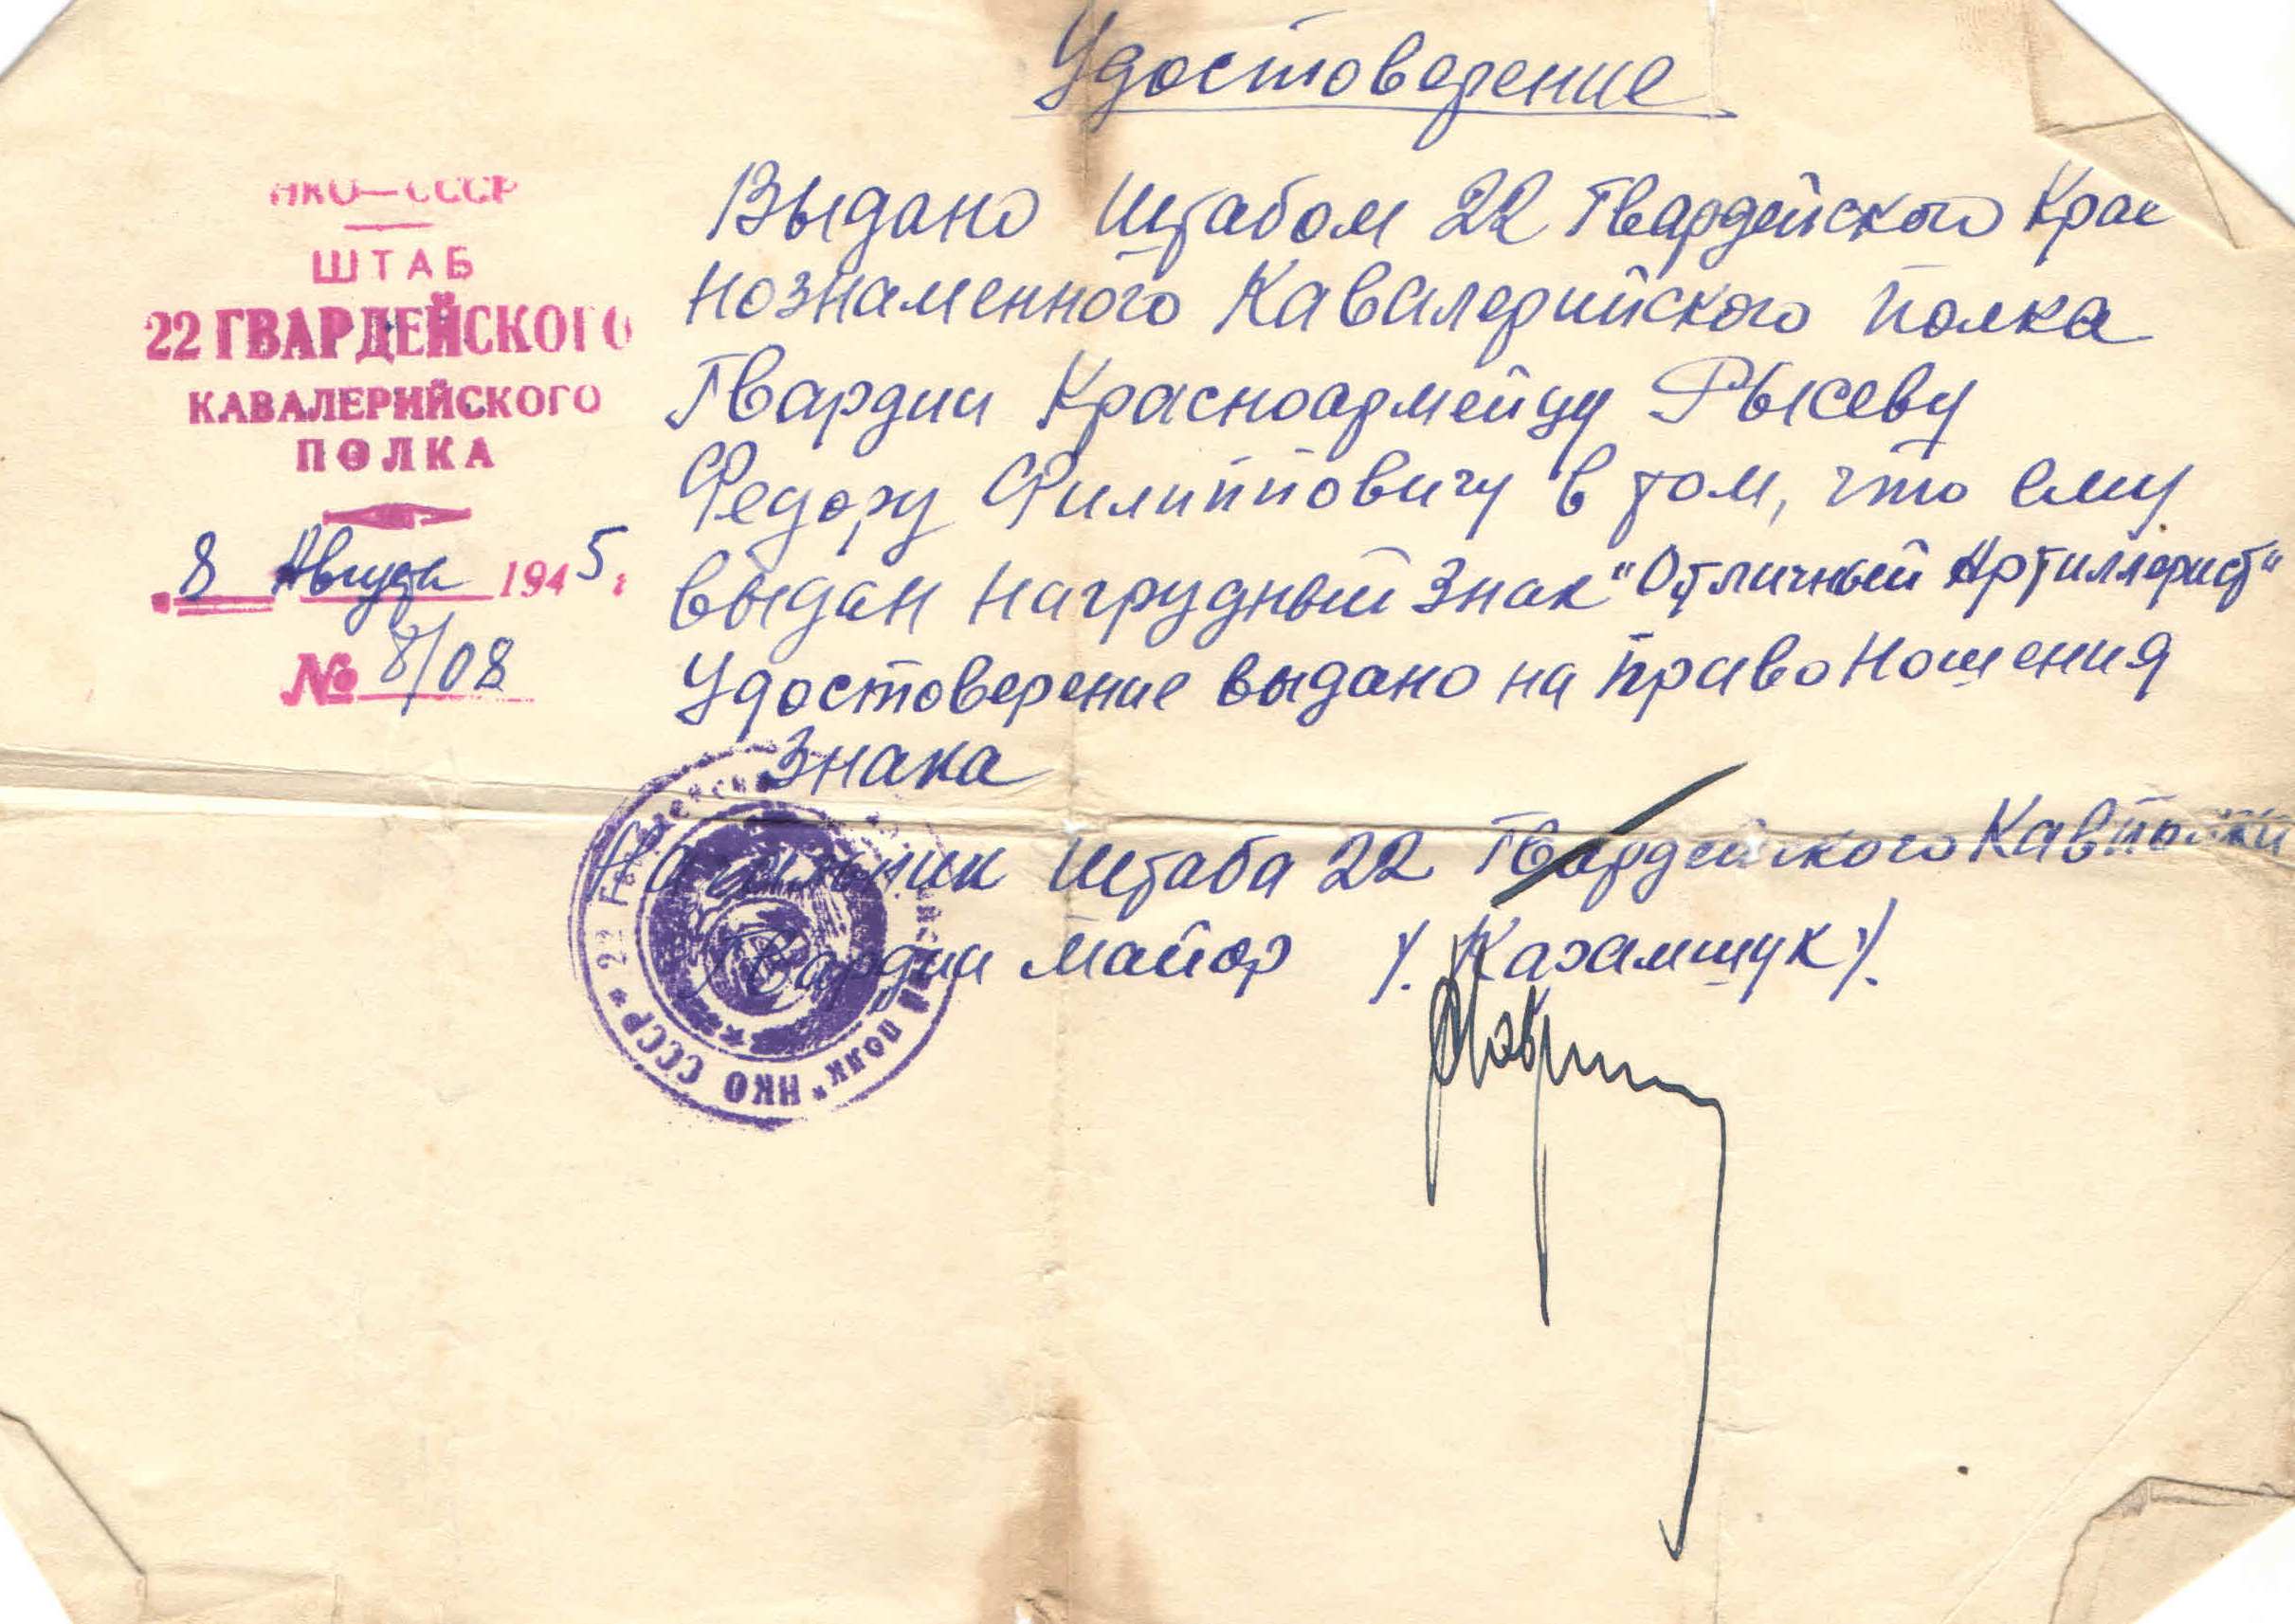 Удостоверение
НКО — СССР
ШТАБ
22 ГВАРДЕЙСКОГО
КАВАЛЕРИЙСКОГО
ПОЛКА
8 Августа 1945 г.
№ 8/08
Выдано Штабом 22 Гвардейского Крас
нознаменного Кавалерийского полка
Гвардии Красноармейцу Рысеву
Федору Филипповичу в том, что ему
выдан нагрудный Знак "Отличный Артиллерист"
Удостоверение выдано на право Ношения
Знака
Начальник Штаба 22 Гвардейского Кавполка
Гвардии майор /. /.
НКО СССР * 22 полк *